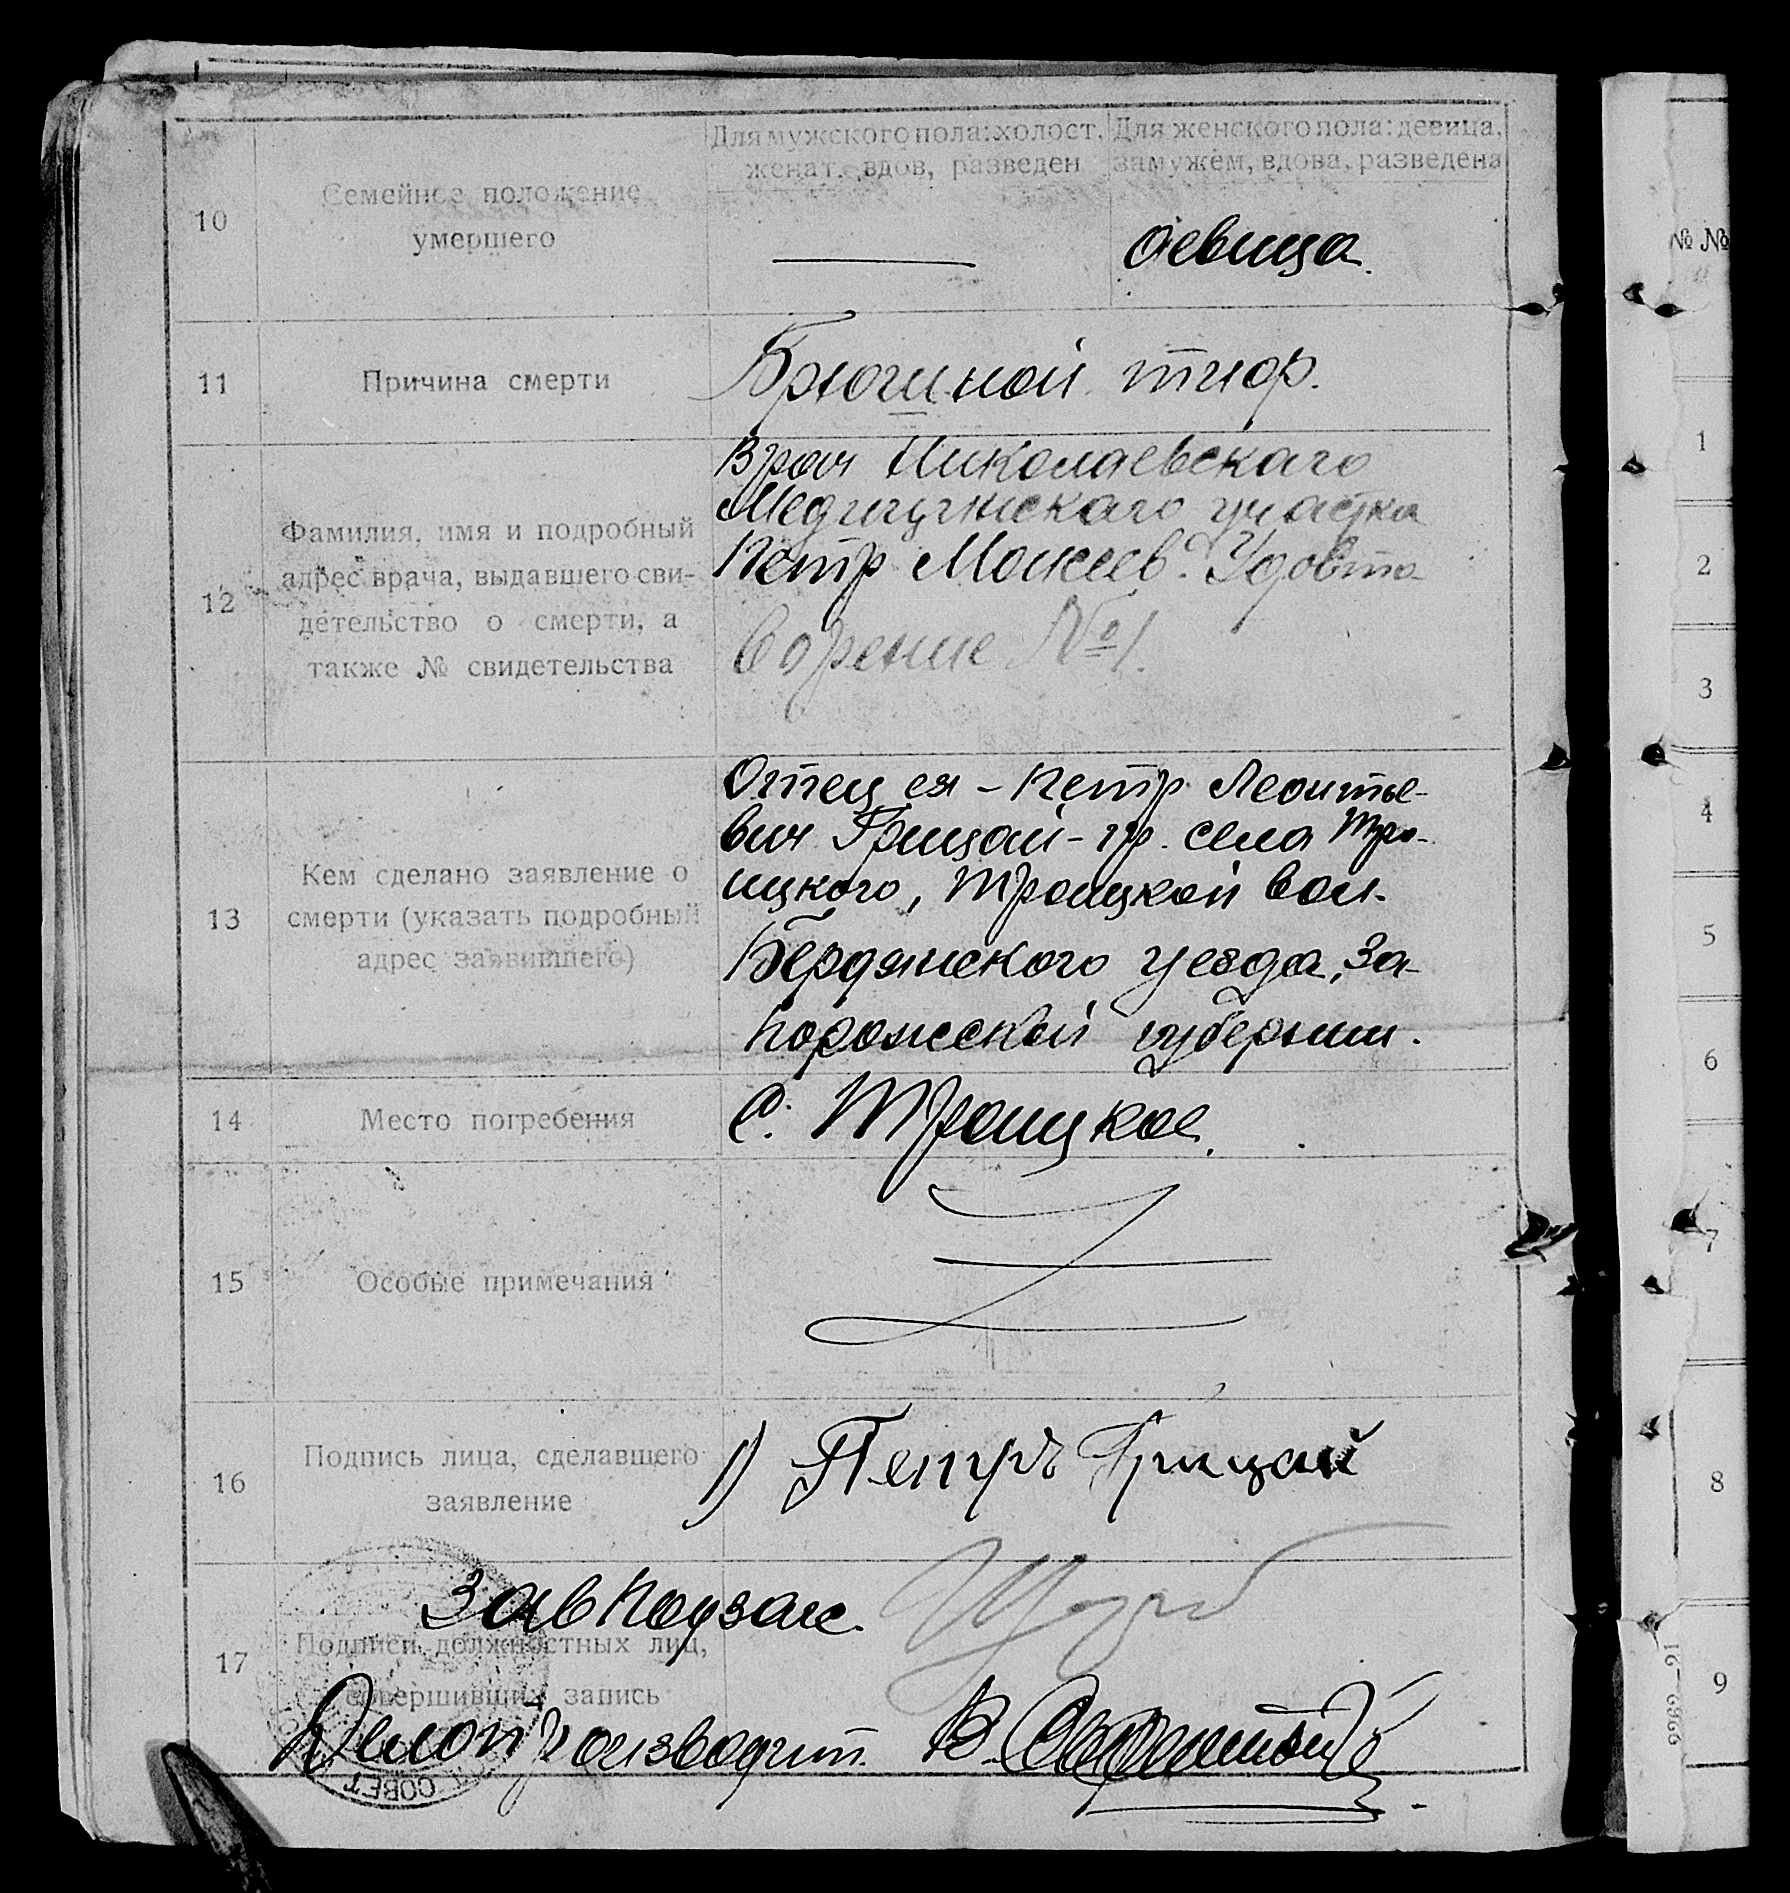 Для мужского пола: холост, женат, вдов, разведен
Для женского пола: девица, замужем, вдова, разведена
10
Семейное положение
умершего
девица.
11
Причина смерти
Брюшной тиф.
12
Фамилия, имя и подробный
адрес врача, выдавшего сви-
детельство о смерти, а
также № свидетельства
Врач Николаевскаго
Медицинскаго участка
Петр Мокеев. Удовто-
ворение №1.
13
Кем сделано заявление о
смерти (указать подробный
адрес заявившего)
Отец ея - Петр Леонтье-
вич Грицай - гр. села Тро-
ицкого, Троицкой вол.
Бердянского уезда, За-
порожской губернии.
14
Место погребения
С. Троицкое.
15
Особые примечания
16
Подпись лица, сделавшего
заявление
1) Петръ Грицай
17
Подписи должностных лиц,
совершивших запись
Завподзаг.
Делопроизводит. В.
СОВЕТ
№ №
1
2
3
4
5
6
7
8
9
9262—21